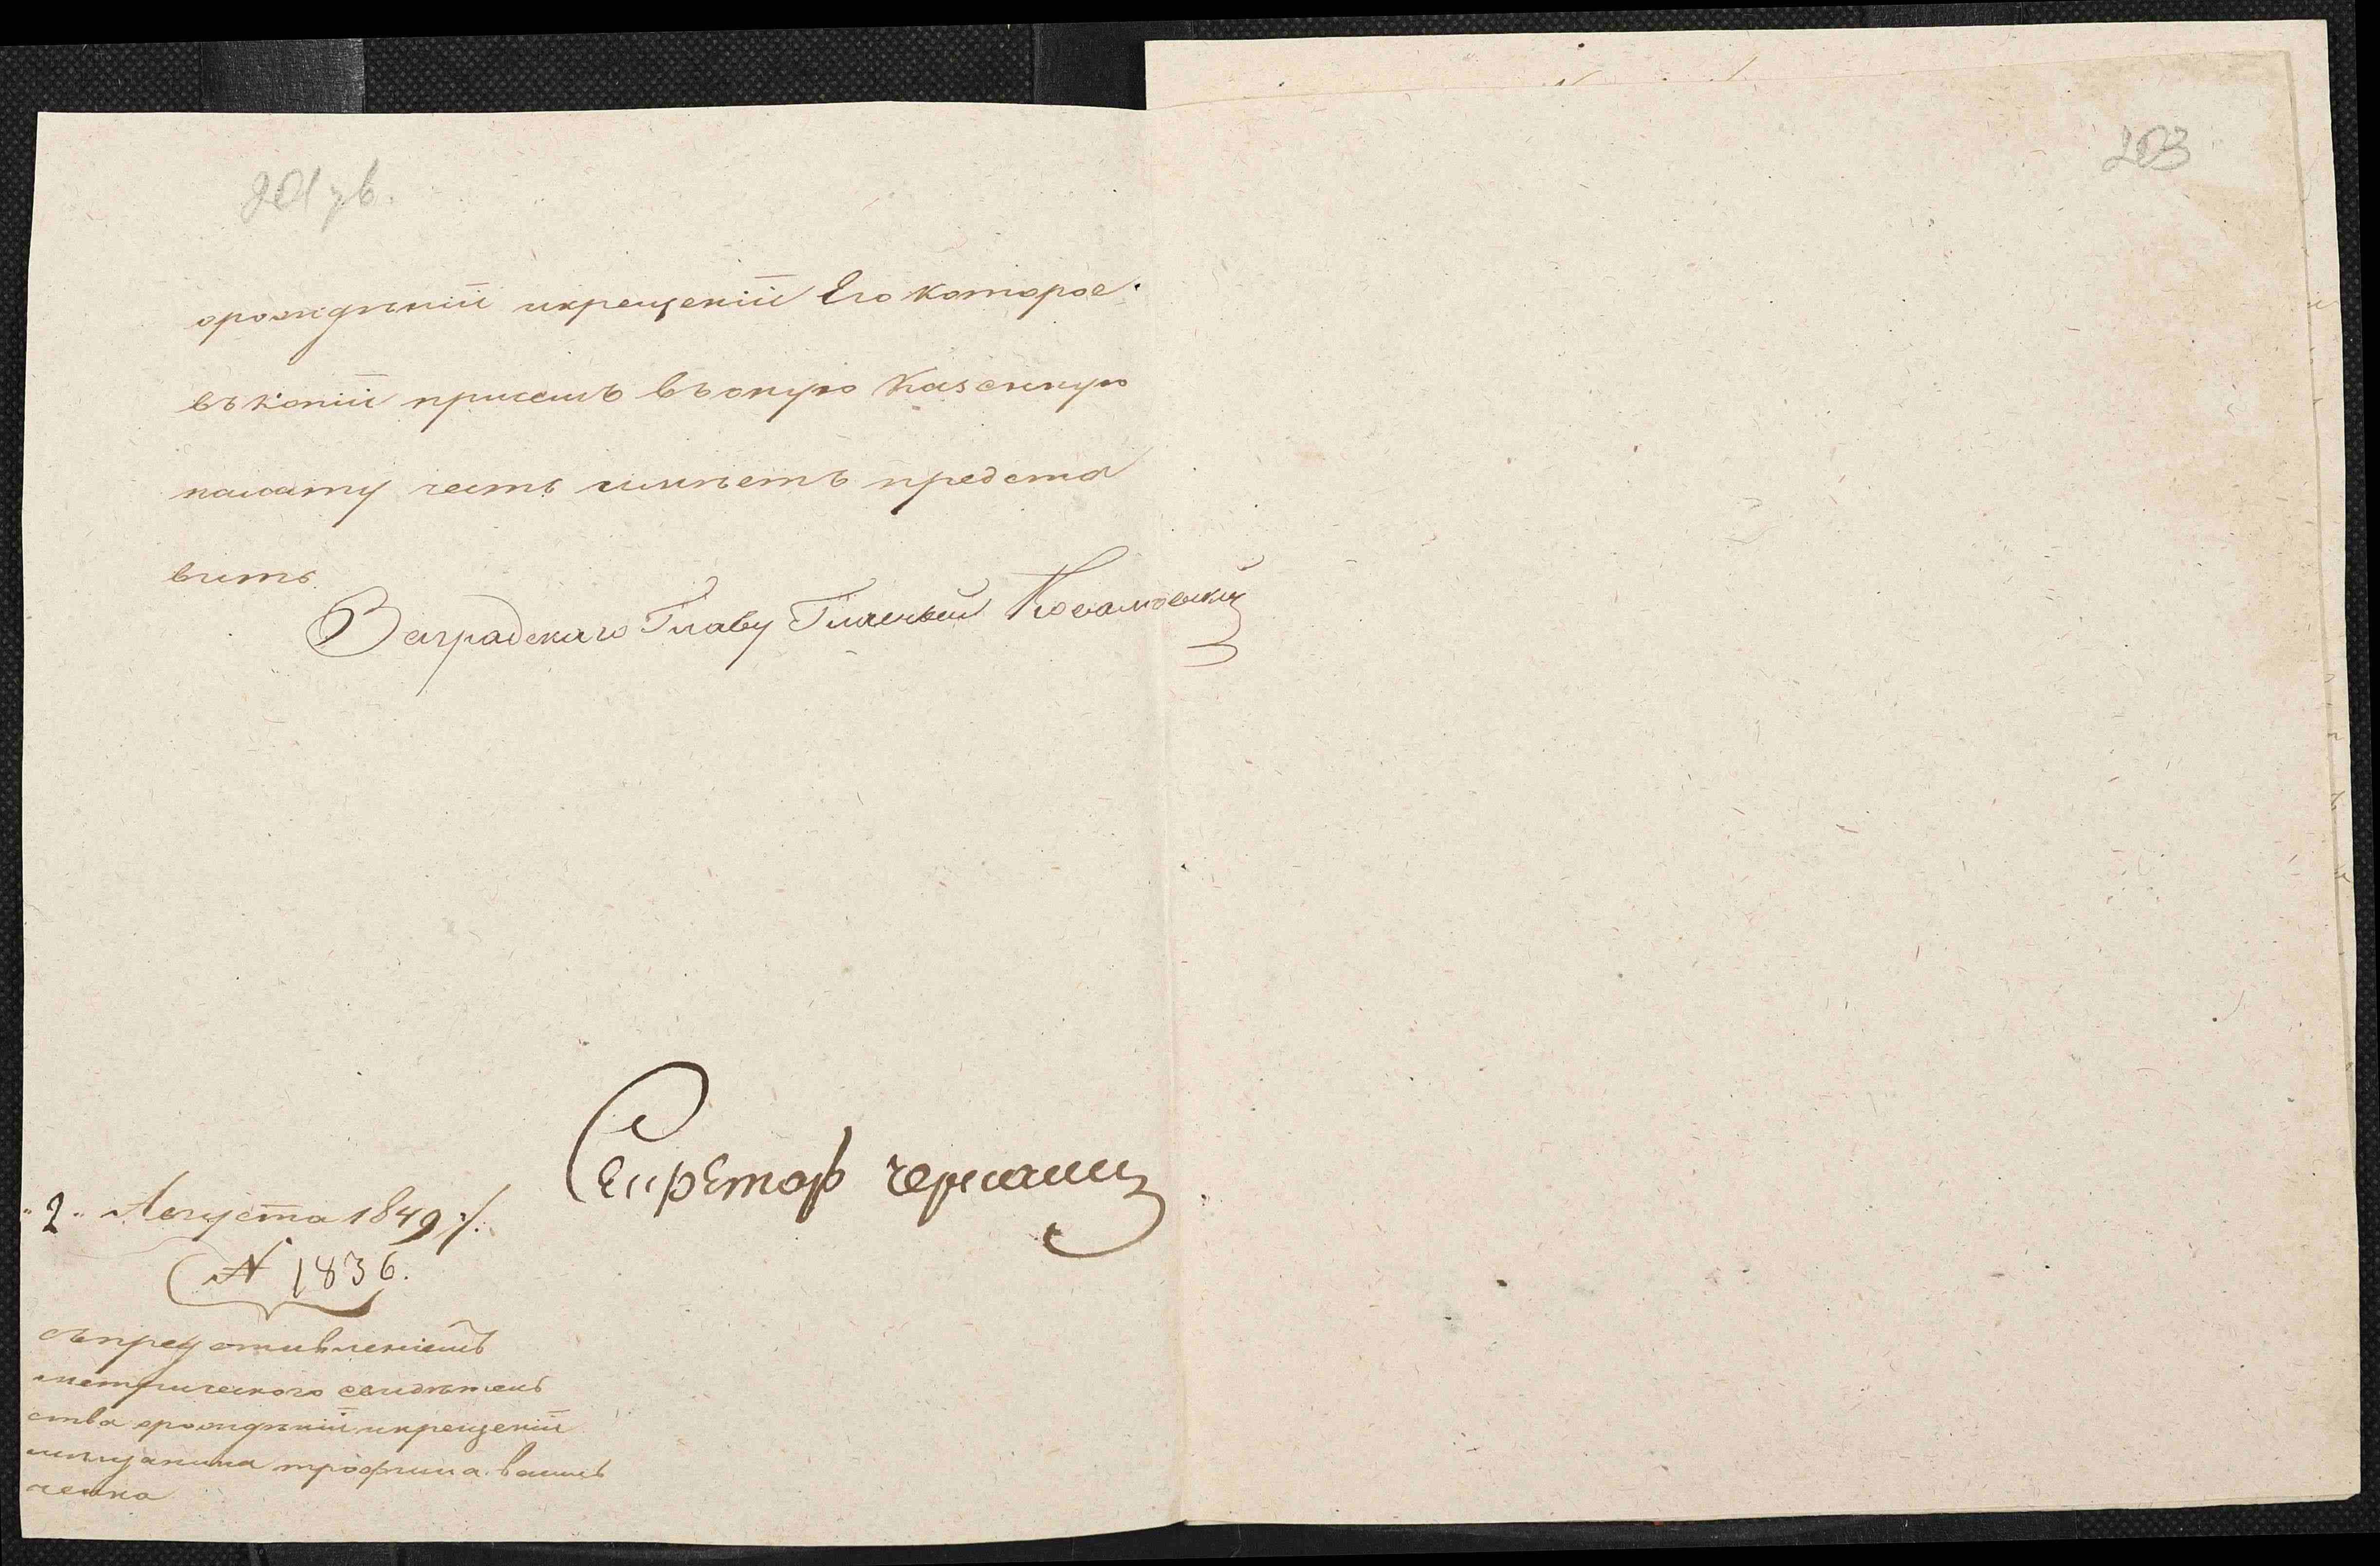 201 зв.
203
орождѣніи икрещеніи Его которое
въ копіи присемъ въоную казенную
палату честь имѣетъ предста
вить
Заградскаго Главу Гласный
Секретарь
"2" Августа 1849 г.
№ 1836.
съпредставленіемъ
метрическаго свидѣтель
ства орождѣніи икрещеніи
мещанина трофима василь
ченка